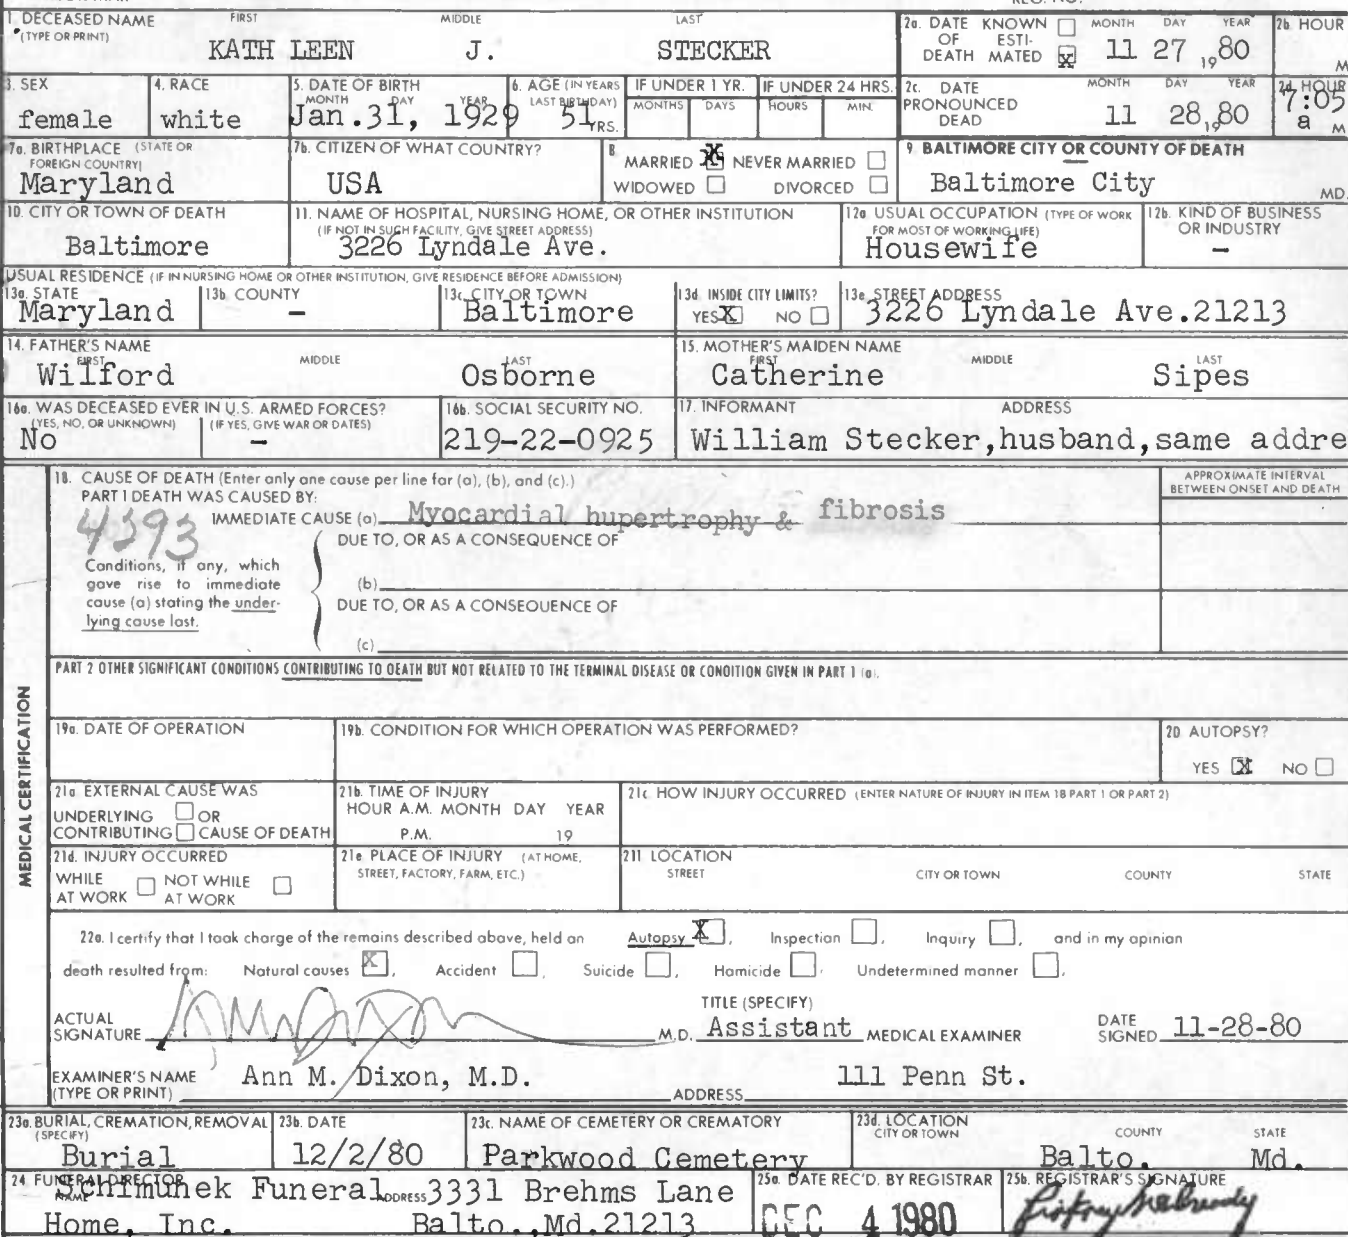 1. DECEASED NAME FIRST MIDDLE LAST
(TYPE OR PRINT)
KATH LEEN J. STECKER
2a. DATE KNOWN OF ESTI- DEATH MATED X MONTH DAY YEAR
11 27, 1980
2b. HOUR
M
3. SEX
female
4. RACE
white
5. DATE OF BIRTH
MONTH DAY YEAR
Jan.31, 1929
6. AGE (IN YEARS LAST BIRTHDAY)
51 YRS.
IF UNDER 1 YR.
MONTHS DAYS
IF UNDER 24 HRS.
HOURS MIN.
2c. DATE PRONOUNCED DEAD MONTH DAY YEAR
11 28, 1980
2d. HOUR
7:05
a M
7a. BIRTHPLACE (STATE OR FOREIGN COUNTRY)
Maryland
7b. CITIZEN OF WHAT COUNTRY?
USA
8. MARRIED X NEVER MARRIED
WIDOWED DIVORCED
9. BALTIMORE CITY OR COUNTY OF DEATH
Baltimore City MD.
10. CITY OR TOWN OF DEATH
Baltimore
11. NAME OF HOSPITAL, NURSING HOME, OR OTHER INSTITUTION
(IF NOT IN SUCH FACILITY, GIVE STREET ADDRESS)
3226 Lyndale Ave.
12a. USUAL OCCUPATION (TYPE OF WORK FOR MOST OF WORKING LIFE)
Housewife
12b. KIND OF BUSINESS OR INDUSTRY
–
USUAL RESIDENCE (IF IN NURSING HOME OR OTHER INSTITUTION, GIVE RESIDENCE BEFORE ADMISSION)
13a. STATE
Maryland
13b. COUNTY
–
13c. CITY OR TOWN
Baltimore
13d. INSIDE CITY LIMITS?
YES X NO
13e. STREET ADDRESS
3226 Lyndale Ave.21213
14. FATHER'S NAME
FIRST MIDDLE LAST
Wilford Osborne
15. MOTHER'S MAIDEN NAME
FIRST MIDDLE LAST
Catherine Sipes
16a. WAS DECEASED EVER IN U.S. ARMED FORCES?
(YES, NO, OR UNKNOWN) (IF YES, GIVE WAR OR DATES)
No –
16b. SOCIAL SECURITY NO.
219-22-0925
17. INFORMANT ADDRESS
William Stecker,husband,same addre
MEDICAL CERTIFICATION
18. CAUSE OF DEATH (Enter only one cause per line for (a), (b), and (c).)
PART I DEATH WAS CAUSED BY:
APPROXIMATE INTERVAL
BETWEEN ONSET AND DEATH
IMMEDIATE CAUSE (a) Myocardial hupertrophy & fibrosis
4293
DUE TO, OR AS A CONSEQUENCE OF
Conditions, if any, which
gave rise to immediate
cause (a) stating the under-
lying cause last.
(b)
DUE TO, OR AS A CONSEQUENCE OF
(c)
PART 2 OTHER SIGNIFICANT CONDITIONS CONTRIBUTING TO DEATH BUT NOT RELATED TO THE TERMINAL DISEASE OR CONDITION GIVEN IN PART 1 (a).
19a. DATE OF OPERATION
19b. CONDITION FOR WHICH OPERATION WAS PERFORMED?
20 AUTOPSY?
YES X NO
21a EXTERNAL CAUSE WAS
UNDERLYING OR
CONTRIBUTING CAUSE OF DEATH
21b. TIME OF INJURY
HOUR A.M. MONTH DAY YEAR
P.M. 19
21c. HOW INJURY OCCURRED (ENTER NATURE OF INJURY IN ITEM 18 PART 1 OR PART 2)
21d. INJURY OCCURRED
WHILE AT WORK NOT WHILE AT WORK
21e. PLACE OF INJURY (AT HOME,
STREET, FACTORY, FARM, ETC.)
21f LOCATION
STREET CITY OR TOWN COUNTY STATE
22a. I certify that I took charge of the remains described above, held an Autopsy X, Inspection , Inquiry , and in my opinion
death resulted from: Natural causes X, Accident , Suicide , Homicide , Undetermined manner ,
ACTUAL SIGNATURE M.D.
TITLE (SPECIFY)
Assistant MEDICAL EXAMINER
DATE SIGNED 11-28-80
EXAMINER'S NAME (TYPE OR PRINT) Ann M. Dixon, M.D.
ADDRESS 111 Penn St.
23a. BURIAL, CREMATION, REMOVAL
(SPECIFY)
Burial
23b. DATE
12/2/80
23c. NAME OF CEMETERY OR CREMATORY
Parkwood Cemetery
23d. LOCATION
CITY OR TOWN COUNTY STATE
Balto. Md.
24. FUNERAL DIRECTOR
NAME Schimunek Funeral ADDRESS 3331 Brehms Lane
Home, Inc. Balto.,Md.21213
25a. DATE REC'D. BY REGISTRAR
DEC 4 1980
25b. REGISTRAR'S SIGNATURE